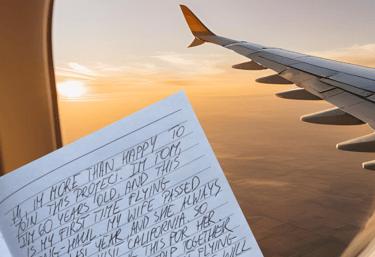 HI, I'M MORE THAN HAPPY TO
JOIN THIS PROJECT. I'M TOM
I'M 60 YEARS OLD, AND THIS
IS MY FIRST TIME FLYING
LONG-HAUL. MY WIFE PASSED
LAST YEAR AND SHE ALWAYS
CALIFORNIA. SO
THIS FOR HER
TOGETHER
FLYING
WILL